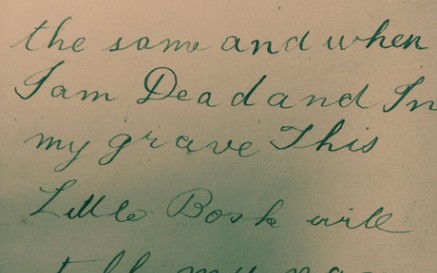 the same and when
I am Dead and In
my grave This
Little Book will
tell my na